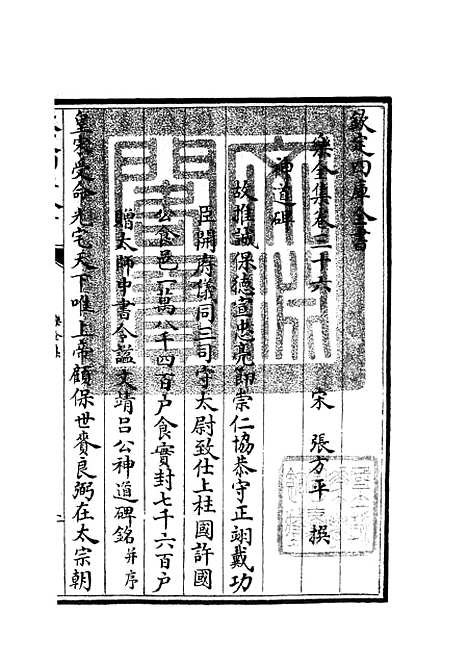 欽定四庫全書
樂全集卷三十六
宋 張方平 撰
神道碑
故推誠保德宣忠亮節崇仁協恭守正翊戴功
臣開府儀同三司守太尉致仕上柱國許國
公食邑一萬八千四百户食實封七千六百户
贈太師中書令謚文靖吕公神道碑銘并序
皇宋受命光宅天下唯上帝顧保世賚良弼在太宗朝